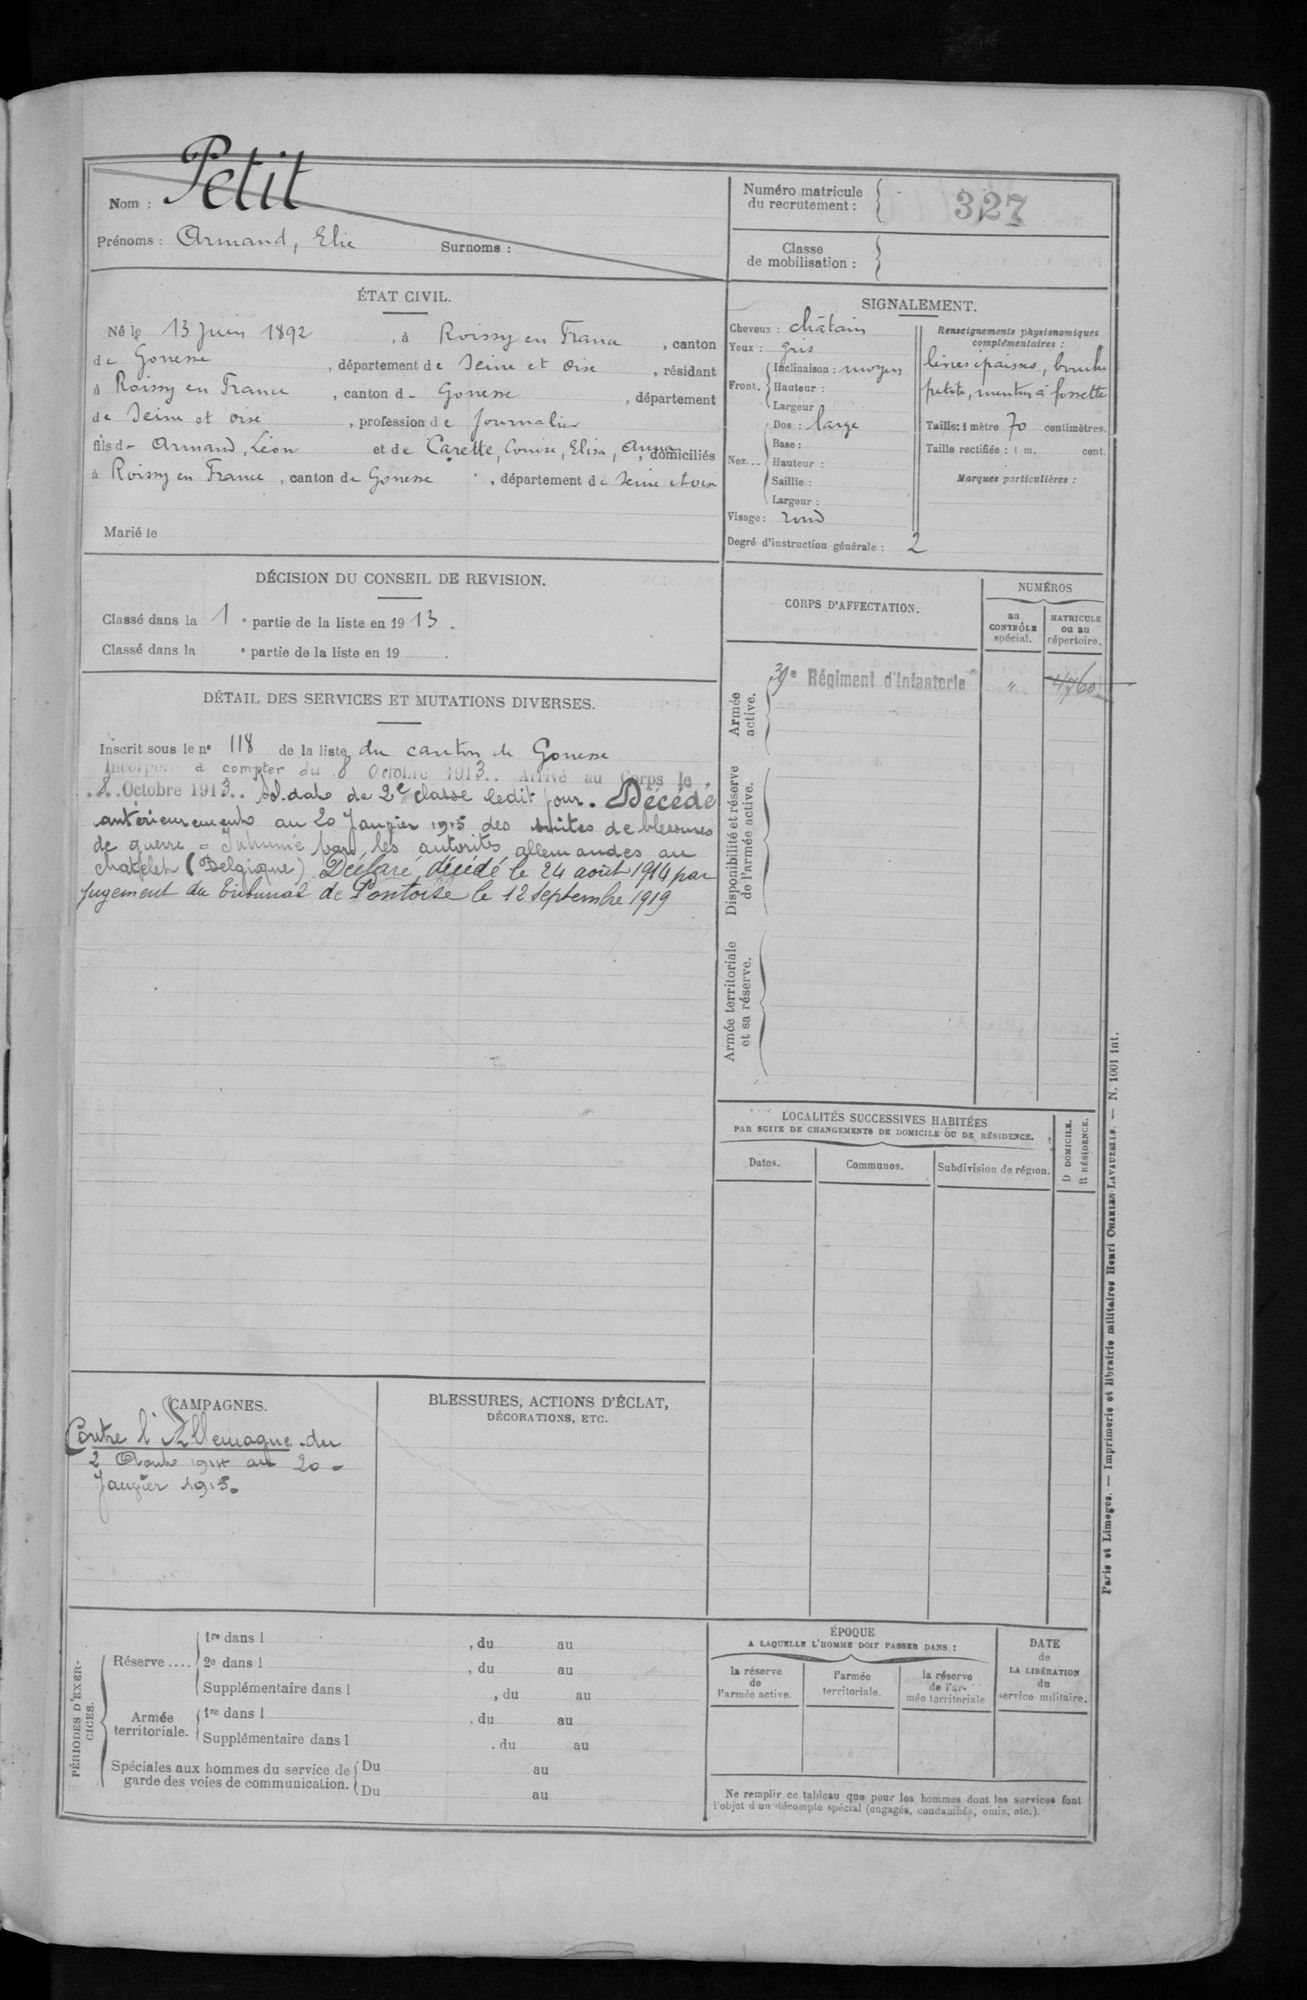 Nom : Petit
Prénoms : Armand, Elie Surnoms :
Numéro matricule du recrutement : 327
Classe de mobilisation :
ÉTAT CIVIL.
Né le 13 Juin 1892, à Roissy en France, canton
de Gonesse, département de Seine et Oise, résidant
à Roissy en France, canton d- Gonesse, département
de Seine et Oise, profession de Journalier
fils d- Armand, Léon et de Carette, Louise, Elisa, Anna, domiciliés
à Roissy en France, canton de Gonesse, département de Seine et Oise
Marié le
SIGNALEMENT.
Cheveux : châtain
Yeux : gris
Front. Inclinaison : moyen
Hauteur :
Largeur :
Nez... Dos : large
Base :
Hauteur :
Saillie :
Largeur :
Visage : rond
Degré d'instruction générale : 2
Renseignements physionomiques complémentaires :
lèvres épaisses, bouche
petite, menton à fossette
Taille: 1 mètre 70 centimètres.
Taille rectifiée : 1 m. cent.
Marques particulières :
DÉCISION DU CONSEIL DE REVISION.
Classé dans la 1 e partie de la liste en 1913.
Classé dans la e partie de la liste en 19 .
DÉTAIL DES SERVICES ET MUTATIONS DIVERSES.
Inscrit sous le n° 118 de la liste du canton de Gonesse
Incorporé à compter du 8 Octobre 1913.. Arrivé au Corps le
8..Octobre 1913.. Soldat de 2e classe ledit jour. Décédé
antérieurement au 20 Janvier 1915 des suites de blessures
de guerre - Inhumé par les autorités allemandes au
chatelet (Belgique) Déclaré décédé le 24 août 1914 par
jugement du tribunal de Pontoise le 12 septembre 1919
CORPS D'AFFECTATION.
NUMÉROS
au CONTRÔLE spécial.
MATRICULE ou au répertoire.
Armée active.
39e Régiment d'Infanterie " 4760
Disponibilité et réserve de l'armée active.
Armée territoriale et sa réserve.
LOCALITÉS SUCCESSIVES HABITÉES
PAR SUITE DE CHANGEMENTS DE DOMICILE OU DE RÉSIDENCE.
Dates. Communes. Subdivision de région. D DOMICILE. R RÉSIDENCE.
CAMPAGNES.
Contre l'Allemagne du
2 Août 1914 au 20
Janvier 1915.
BLESSURES, ACTIONS D'ÉCLAT,
DÉCORATIONS, ETC.
PÉRIODES D'EXERCICES.
Réserve.... 1re dans l , du au
2e dans l , du au
Supplémentaire dans l , du au
Armée territoriale. 1re dans l , du au
Supplémentaire dans l , du au
Spéciales aux hommes du service de garde des voies de communication. Du au
Du au
ÉPOQUE
A LAQUELLE L'HOMME DOIT PASSER DANS :
la réserve de l'armée active.
l'armée territoriale.
la réserve de l'armée territoriale
DATE de LA LIBÉRATION du service militaire.
Ne remplir ce tableau que pour les hommes dont les services font
l'objet d'un décompte spécial (engagés, condamnés, omis, etc.).
Paris et Limoges. — Imprimerie et librairie militaires Henri CHARLES-LAVAUZELLE. — N. 1001 int.